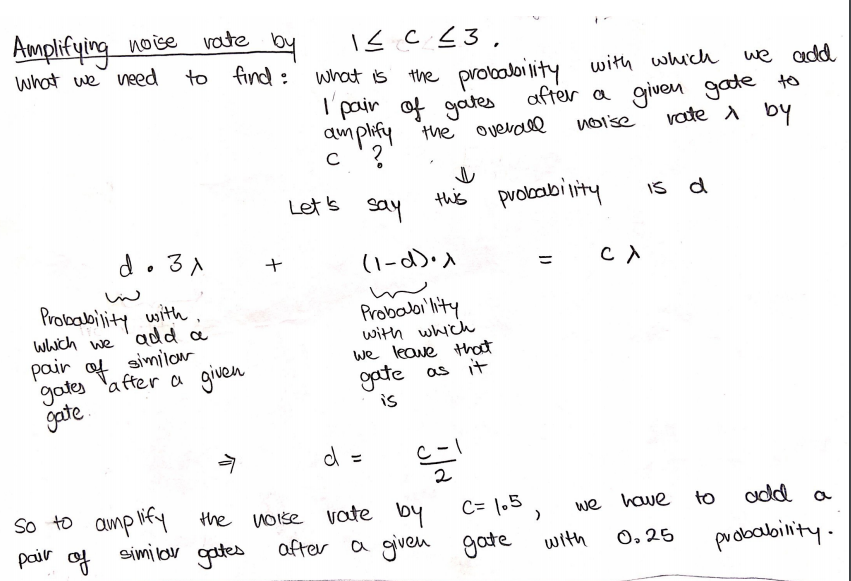 Amplifying noise rate by 1 ≤ c ≤ 3.
What we need to find: What is the probability with which we add
1 pair of gates after a given gate to
amplify the overall noise rate λ by
c ?
⇓
Let's say this probability is d
d . 3λ + (1-d).λ = c λ
Probability with
which we add a
pair of similar
gates after a given
gate.
Probability
with which
we leave that
gate as it
is
⇒ d = c-1 / 2
So to amplify the noise rate by c= 1.5, we have to add a
pair of similar gates after a given gate with 0.25 probability.